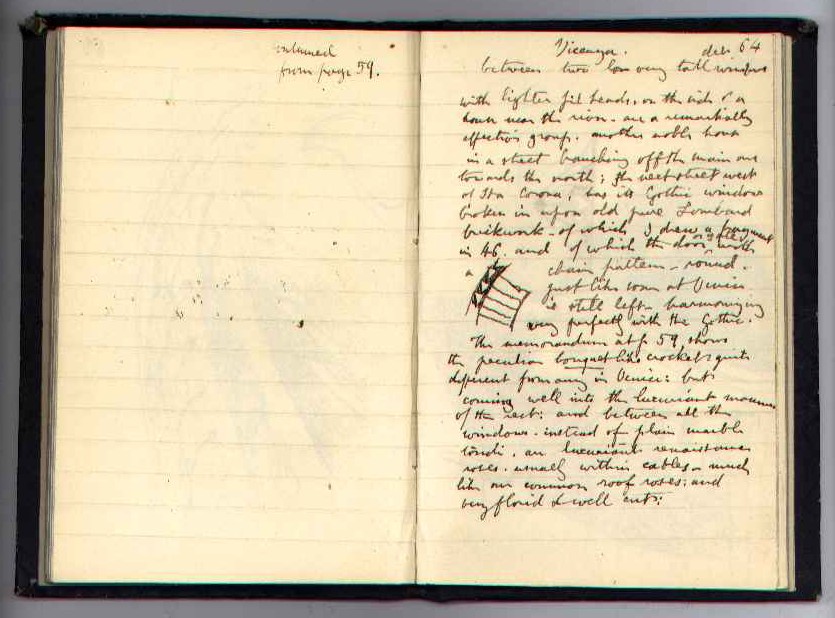 from page 59.
Vicenza. 64
between two low very tall windows
with lighter fil heads, on the side of a
house near the river. are a remarkably
effective group. another noble house
in a street branching off the main one
towards the north; the next street west
of Sta Corona, has its Gothic windows
broken in upon old pure Lombard
brickwork - of which I drew a fragment
in 46. and of which the door with
a chain pattern - round.
just like some at Venice
is still left - harmonizing
very perfectly with the Gothic.
The memorandum at p. 59, shows
the peculiar bouquet like crockets quite
different from any in Venice: but
coming well into the luxuriant manner
of the rest: and between all the
windows. instead of plain marble
tondi. are luxuriant renaissance
roses. usually within cables - much
like our common roof roses: and
very florid & well cut: